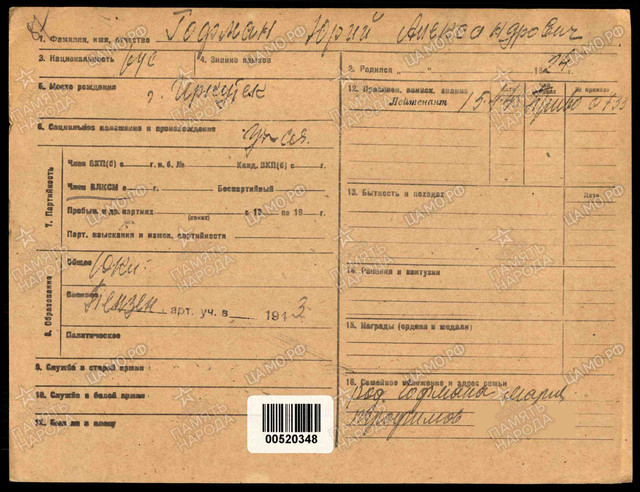 1. Фамилия, имя, отчество Гофман Юрий Александрович
3. Национальность рус 4. Знание языков
2. Родился „ “ 1924 г.
5. Место рождения г. Иркутск
6. Социальное положение и происхождение
7. Партийность
Член ВКП(б) с г. п. б. № Канд. ВКП(б) с г.
Член ВЛКСМ с г. Беспартийный
Пребыв. в др. партиях (каких) с 19 по 19 г.
Парт. взыскания и измен. партийности
8. Образование
Общее 10 кл.
Военное Пензен. арт. уч. в 1943
Политическое
9. Служба в старой армии
10. Служба в белой армии
11. Был ли в плену
12. Присвоен. воинск. звания Дата № приказа
Лейтенант
13. Бытность в походах Дата
14. Ранения и контузии
15. Награды (ордена и медали)
16. Семейное положение и адрес семьи
Гофман Мария
00520348
ПАМЯТЬ НАРОДА
ЦАМО.РФ